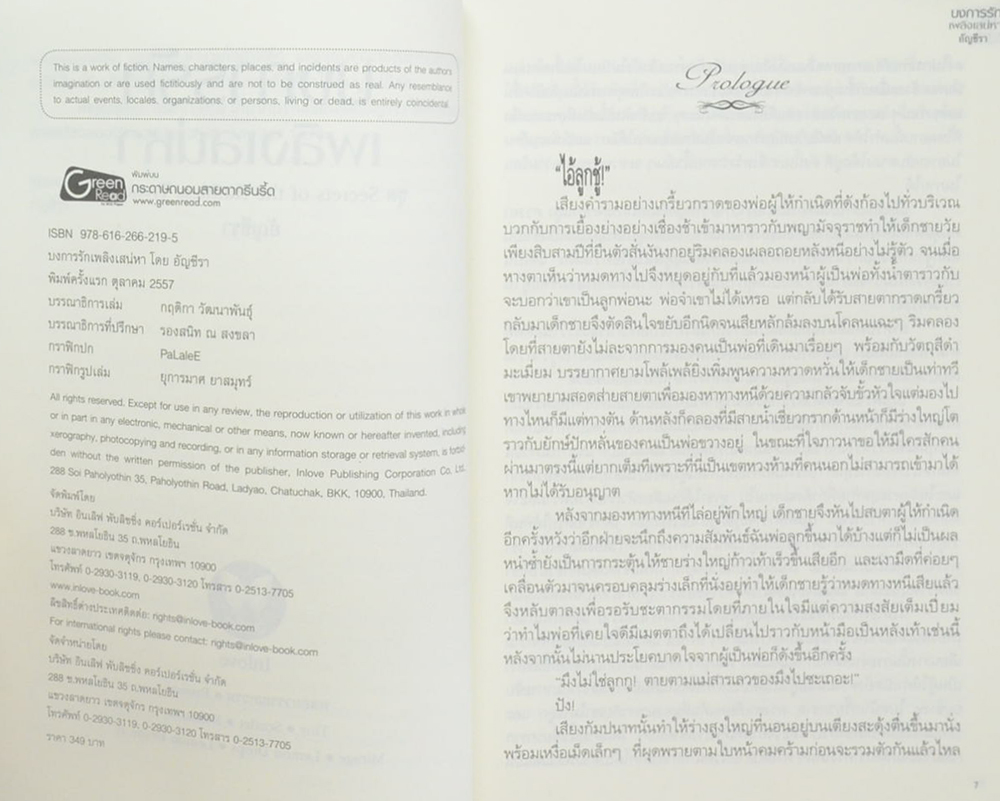 This is a work of fiction. Names, characters, places, and incidents are products of the authors
imagination or are used fictitiously and are not to be construed as real. Any resemblance
to actual events, locales, organizations, or persons, living or dead, is entirely coincidental.
Green Read
พิมพ์บน
กระดาษถนอมสายตากรีนรี้ด
www.greenread.com
ISBN 978-616-266-219-5
บงการรักเพลิงเสน่หา โดย อัญชีรา
พิมพ์ครั้งแรก ตุลาคม 2557
บรรณาธิการเล่ม กฤติกา วัฒนาพันธุ์
บรรณาธิการที่ปรึกษา รองสนิท ณ สงขลา
กราฟิกปก PaLaleE
กราฟิกรูปเล่ม ยุการมาศ ยาสมุทร์
All rights reserved. Except for use in any review, the reproduction or utilization of this work in whole
or in part in any electronic, mechanical or other means, now known or hereafter invented, including
xerography, photocopying and recording, or in any information storage or retrieval system, is forbid-
den without the written permission of the publisher, Inlove Publishing Corporation Co, Ltd.
288 Soi Paholyothin 35, Paholyothin Road, Ladyao, Chatuchak, BKK, 10900, Thailand.
จัดพิมพ์โดย
บริษัท อินเลิฟ พับลิชชิ่ง คอร์เปอร์เรชั่น จำกัด
288 ซ.พหลโยธิน 35 ถ.พหลโยธิน
แขวงลาดยาว เขตจตุจักร กรุงเทพฯ 10900
โทรศัพท์ 0-2930-3119, 0-2930-3120 โทรสาร 0-2513-7705
www.inlove-book.com
ลิขสิทธิ์ต่างประเทศติดต่อ: rights@inlove-book.com
For international rights please contact: rights@inlove-book.com
จัดจำหน่ายโดย
บริษัท อินเลิฟ พับลิชชิ่ง คอร์เปอร์เรชั่น จำกัด
288 ซ.พหลโยธิน 35 ถ.พหลโยธิน
แขวงลาดยาว เขตจตุจักร กรุงเทพฯ 10900
โทรศัพท์ 0-2930-3119, 0-2930-3120 โทรสาร 0-2513-7705
ราคา 349 บาท
บงการรัก
เพลิงเสน่หา
อัญชีรา
Prologue
“ไอ้ลูกชู้!”
เสียงคำรามอย่างเกรี้ยวกราดของพ่อผู้ให้กำเนิดที่ดังก้องไปทั่วบริเวณ
บวกกับการเยื้องย่างอย่างเชื่องช้าเข้ามาหาราวกับพญามัจจุราชทำให้เด็กชายวัย
เพียงสิบสามปีที่ยืนตัวสั่นงันงกอยู่ริมคลองเผลอถอยหลังหนีอย่างไม่รู้ตัว จนเมื่อ
หางตาเห็นว่าหมดทางไปจึงหยุดอยู่กับที่แล้วมองหน้าผู้เป็นพ่อทั้งน้ำตาราวกับ
จะบอกว่าเขาเป็นลูกพ่อนะ พ่อจำเขาไม่ได้เหรอ แต่กลับได้รับสายตากราดเกรี้ยว
กลับมาเด็กชายจึงตัดสินใจขยับอีกนิดจนเสียหลักล้มลงบนโคลนแฉะๆ ริมคลอง
โดยที่สายตายังไม่ละจากการมองคนเป็นพ่อที่เดินมาเรื่อยๆ พร้อมกับวัตถุสีดำ
มะเมี่ยม บรรยากาศยามโพล้เพล้ยิ่งเพิ่มพูนความหวาดหวั่นให้เด็กชายเป็นเท่าทวี
เขาพยายามสอดส่ายสายตาเพื่อมองหาทางหนีด้วยความกลัวจับขั้วหัวใจแต่มองไป
ทางไหนก็มีแต่ทางตัน ด้านหลังก็คลองที่มีสายน้ำเชี่ยวกรากด้านหน้าก็มีร่างใหญ่โต
ราวกับยักษ์ปักหลั่นของคนเป็นพ่อขวางอยู่ ในขณะที่ใจภาวนาขอให้มีใครสักคน
ผ่านมาตรงนี้แต่ยากเต็มทีเพราะที่นี่เป็นเขตหวงห้ามที่คนนอกไม่สามารถเข้ามาได้
หากไม่ได้รับอนุญาต
หลังจากมองหาทางหนีทีไล่อยู่พักใหญ่ เด็กชายจึงหันไปสบตาผู้ให้กำเนิด
อีกครั้งหวังว่าอีกฝ่ายจะนึกถึงความสัมพันธ์ฉันพ่อลูกขึ้นมาได้บ้างแต่ก็ไม่เป็นผล
หนำซ้ำยังเป็นการกระตุ้นให้ชายร่างใหญ่ก้าวเท้าเร็วขึ้นเสียอีก และเงามืดที่ค่อยๆ
เคลื่อนตัวมาจนครอบคลุมร่างเล็กที่นั่งอยู่ทำให้เด็กชายรู้ว่าหมดทางหนีเสียแล้ว
จึงหลับตาลงเพื่อรอรับชะตากรรมโดยที่ภายในใจมีแต่ความสงสัยเต็มเปี่ยม
ว่าทำไมพ่อที่เคยใจดีมีเมตตาถึงได้เปลี่ยนไปราวกับหน้ามือเป็นหลังเท้าเช่นนี้
หลังจากนั้นไม่นานประโยคบาดใจจากผู้เป็นพ่อก็ดังขึ้นอีกครั้ง
“มึงไม่ใช่ลูกกู! ตายตามแม่สารเลวของมึงไปซะเถอะ!”
ปัง!
เสียงกัมปนาทนั้นทำให้ร่างสูงใหญ่ที่นอนอยู่บนเตียงสะดุ้งตื่นขึ้นมานั่ง
พร้อมเหงื่อเม็ดเล็กๆ ที่ผุดพรายตามใบหน้าคมคร้ามก่อนจะรวมตัวกันแล้วไหล
7